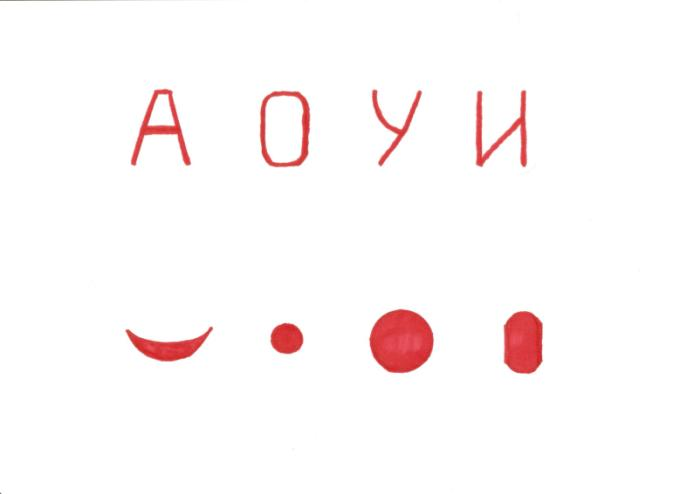 А О У И